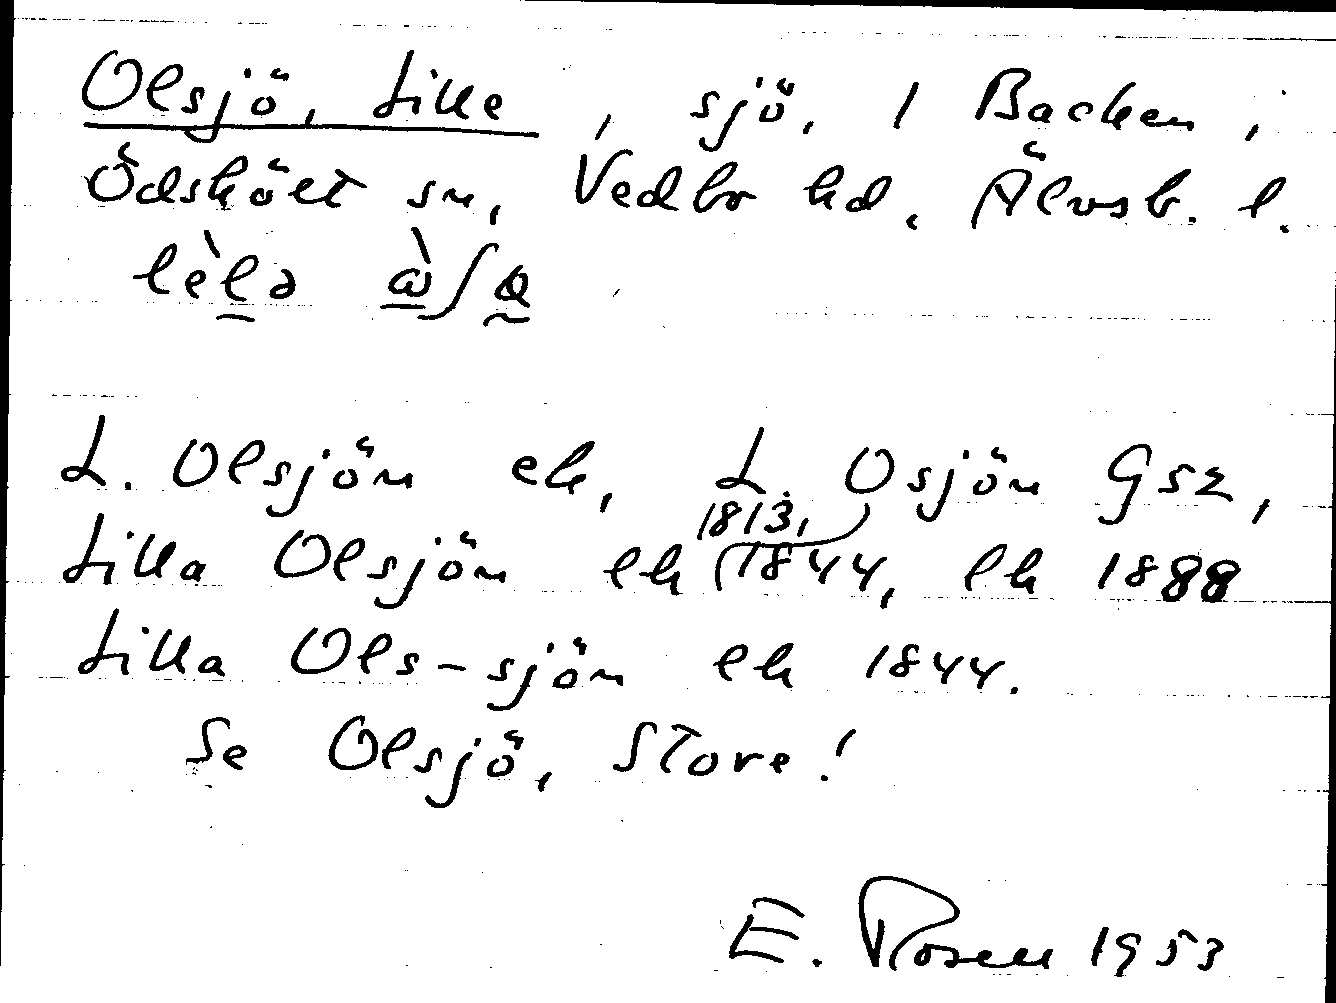 Olsjö, Lille, sjö, 1 Backen i
Ödskölt sn, Vedbo hd, Älvsb. l.
L. Olsjön ek, L. Osjön Gsz,
Lilla Olsjön lk (1813, 1844, lk 1888
Lilla Ols-sjön lk 1844.
Se Olsjö, Store!
E. Rosen 1953